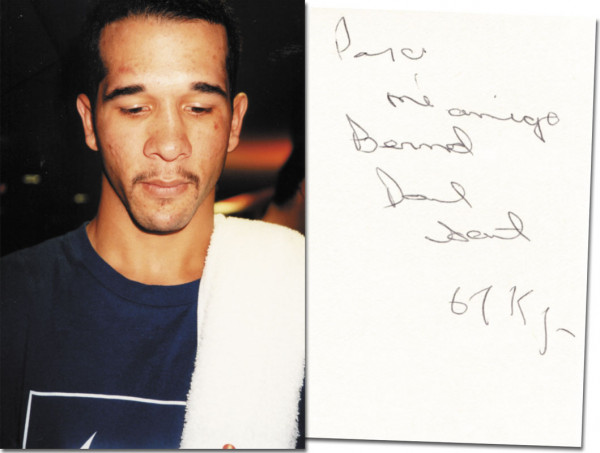 Para
mi amigo
Bernd
Danl
Sant
67 Kg